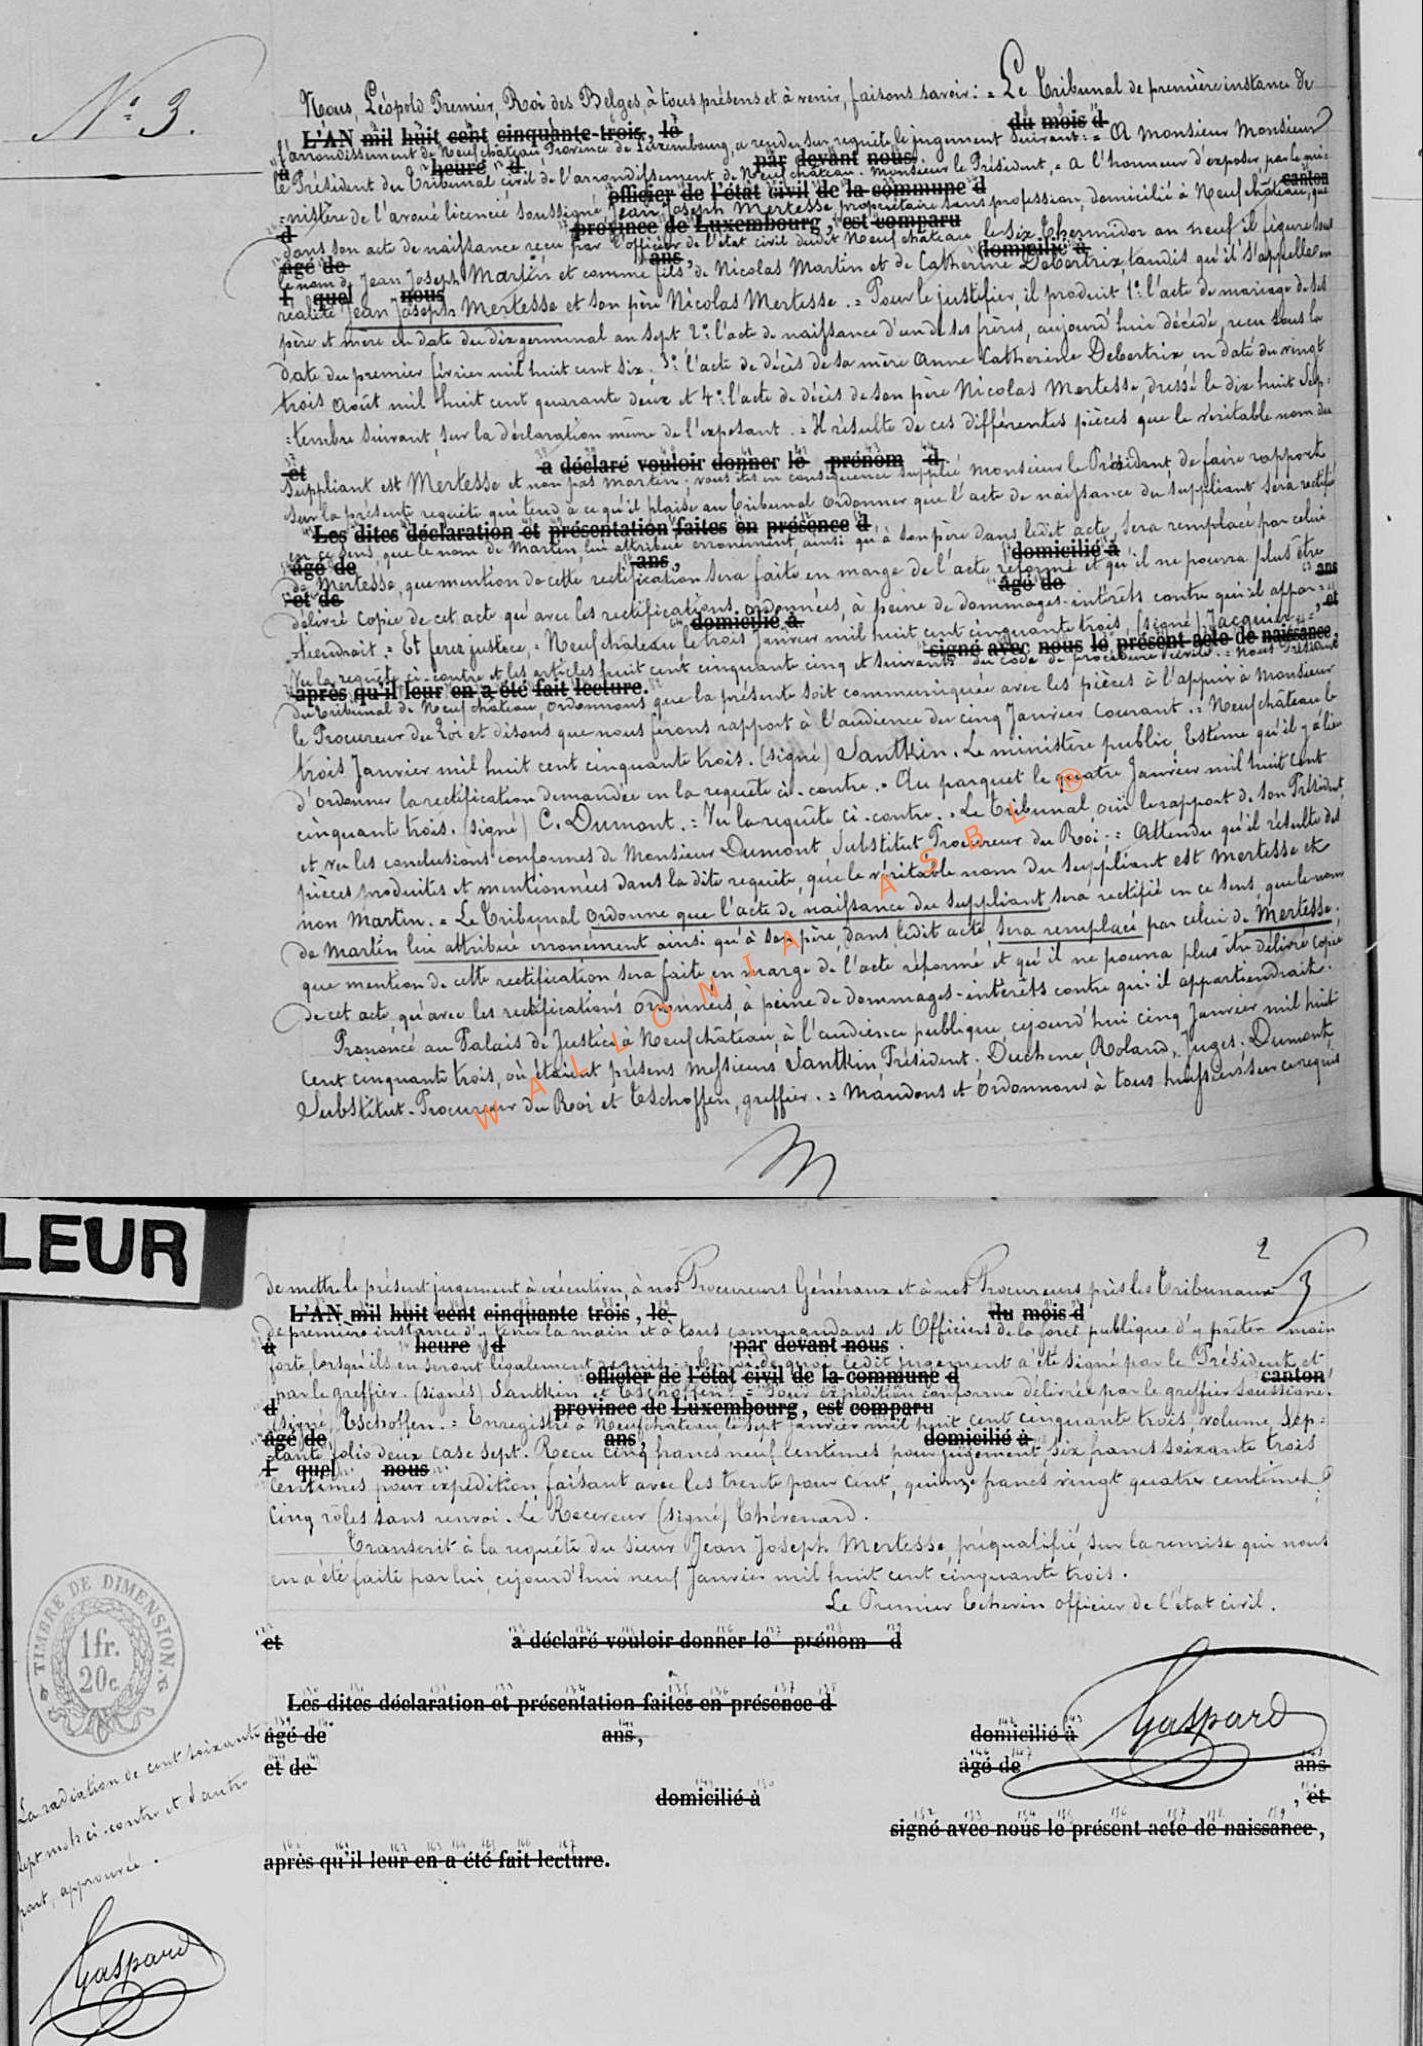 N° 3.
Nous, Léopold Premier, Roi des Belges, à tous présens et à venir, faisons savoir : = Le Tribunal de première instance de
L'AN mil huit cent cinquante-trois, le du mois d
l'arrondissement de Neufchâteau, Province de Luxembourg, a rendu sur requête le jugement suivant : = A Monsieur Monsieur
à heure d par devant nous
le Président du Tribunal civil de l'arrondissement de Neufchâteau. Monsieur le Président, = a l'honneur d'exposer par le mi=
officier de l'état civil de la commune d canton
=nistère de l'avoué licencié soussigné, Jean Joseph Mertesse propriétaire sans profession, domicilié à Neufchâteau, que
d province de Luxembourg, est comparu
dans son acte de naissance reçu par l'officier de l'état civil dudit Neufchâteau le six Thermidor an neuf il figure sous
âgé de ans, domicilié à
le nom de Jean Joseph Martin et comme fils de Nicolas Martin et de Catherine Debertrix, tandis qu'il s'appelle en
l quel nous
réalité Jean Joseph Mertesse et son père Nicolas Mertesse. = Pour le justifier, il produit 1° l'acte de mariage de ses
père et mère en date du dix germinal an sept 2° l'acte de naissance d'un de ses frères, aujourd'hui décédé, reçu sous la
date du premier février mil huit cent six. 3° l'acte de décès de sa mère Anne Catherine Debertrix en date du vingt
trois Août mil huit cent quarante deux et 4° l'acte de décès de son père Nicolas Mertesse, dressé le dix huit Sep=
=tembre suivant, sur la déclaration même de l'exposant. = Il résulte de ces différentes pièces que le véritable nom du
et a déclaré vouloir donner le prénom d
suppliant est Mertesse et non pas Martin ; vous êtes en conséquence supplié Monsieur le Président, de faire rapport
sur la présente requête qui tend à ce qu'il plaise au Tribunal ordonner que l'acte de naissance du suppliant sera rectifié
Les dites déclaration et présentation faites en présence d
en ce sens, que le nom de Martin lui attribué erronément, ainsi qu'à son père dans ledit acte, sera remplacé par celui
âgé de ans, domicilié à
de Mertesse, que mention de cette rectification sera faite en marge de l'acte réformé et qu'il ne pourra plus être
et de âgé de ans
délivré copie de cet acte qu'avec les rectifications ordonnées, à peine de dommages-intérêts contre qui il appar=
domicilié à , et
=tiendrait. = Et ferez justice, = Neufchâteau le trois Janvier mil huit cent cinquante trois, (signé) Jacquier. =
signé avec nous le présent acte de naissance,
Vu la requête ci-contre et les articles huit cent cinquante cinq et suivants du code de procédure civile. = Nous Président
après qu'il leur en a été fait lecture.
du Tribunal de Neufchâteau, ordonnons que la présente soit communiquée avec les pièces à l'appui à Monsieur
le Procureur du Roi et disons que nous ferons rapport à l'audience du cinq Janvier courant. = Neufchâteau le
trois Janvier mil huit cent cinquante trois. (signé) Santkin. Le ministère public, Estime qu'il y a lieu
d'ordonner la rectification demandée en la requête ci-contre. = Au parquet le quatre Janvier mil huit cent
cinquante trois. (signé) C. Dumont. = Vu la requête ci-contre. = Le Tribunal, ouï le rapport de son Président,
et vu les conclusions conformes de Monsieur Dumont Substitut Procureur du Roi ; = Attendu qu'il résulte des
pièces produites et mentionnées dans la dite requête, que le véritable nom du suppliant est Mertesse et
non Martin. = Le Tribunal ordonne que l'acte de naissance du suppliant sera rectifié en ce sens, que le nom
de Martin lui attribué erronément ainsi qu'à son père, dans ledit acte, sera remplacé par celui de Mertesse,
que mention de cette rectification sera faite en marge de l'acte réformé et qu'il ne pourra plus être délivré copie
de cet acte, qu'avec les rectifications ordonnées, à peine de dommages-intérêts contre qui il appartiendrait.
Prononcé au Palais de Justice à Neufchâteau, à l'audience publique, cejourd'hui cinq Janvier mil huit
cent cinquante trois, où étaient présens Messieurs Santkin Président, Duchene, Roland, Juges. Dumont
Substitut-Procureur du Roi et Tschoffen, greffier. = Mandons et ordonnons à tous huissiers sur ce requis
WALLONIA ASBL ®
LEUR
2
3
de mettre le présent jugement à exécution, à nos Procureurs Généraux et à nos Procureurs près les Tribunaux
L'AN mil huit cent cinquante trois, le du mois d
de première instance d'y tenir la main et à tous commandans et Officiers de la force publique d'y prêter main
à heure d par devant nous
forte lorsqu'ils en seront légalement requis. = En foi de quoi ledit jugement a été signé par le Président et
officier de l'état civil de la commune d canton
par le greffier. (signés) Santkin et Tschoffen. = Pour expédition conforme délivrée par le greffier soussigné.
d province de Luxembourg, est comparu
(signé) Tschoffen. = Enregistré à Neufchâteau le sept Janvier mil huit cent cinquante trois, volume Sep=
âgé de ans, domicilié à
=tante folio deux case sept. Reçu cinq francs neuf centimes pour jugement, six francs soixante trois
l quel nous
centimes pour expédition, faisant avec les trente pour cent, quinze francs vingt quatre centimes.
Cinq rôles sans renvoi. Le Receveur (signé) Thérenard.
Transcrit à la requête du sieur Jean Joseph Mertesse, préqualifié, sur la remise qui nous
en a été faite par lui, cejourd'hui neuf Janvier mil huit cent cinquante trois.
Le Premier Echevin officier de l'état civil.
et a déclaré vouloir donner le prénom d
Les dites déclaration et présentation faites en présence d
âgé de ans, domicilié à
et de âgé de ans
domicilié à , et
signé avec nous le présent acte de naissance,
après qu'il leur en a été fait lecture.
Gaspard
TIMBRE DE DIMENSION.
1 fr.
20 c.
La radiation de cent soixante
sept mots ci-contre et d'autre
part, approuvée.
Gaspard